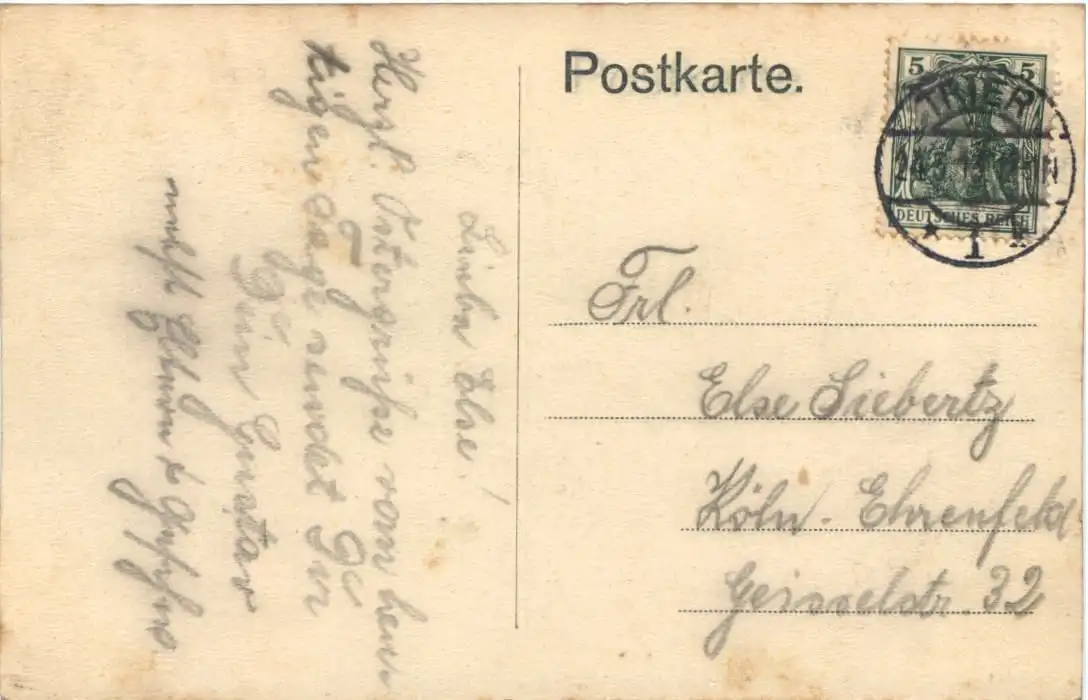 Postkarte.
5 5
TRIER
DEUTSCHES REICH
* 1 k
Frl.
Else Siebertz
Köln-Ehrenfeld
Geisselstr. 32
Liebe Else!
Herzl. Ostergrüße vom heu-
tigen Tage sendet Dir
Dein Gustav
nebst Eltern &